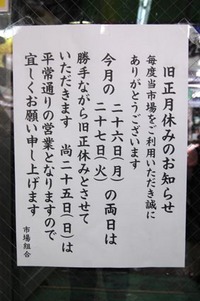 旧正月休みのお知らせ
毎度当市場をご利用いただき誠に
ありがとうございます
今月の 二十六日(月)の両日は
二十七日(火)
勝手ながら旧正休みとさせて
いただきます 尚二十五日(日)は
平常通りの営業となりますので
宜しくお願い申し上げます
市場組合